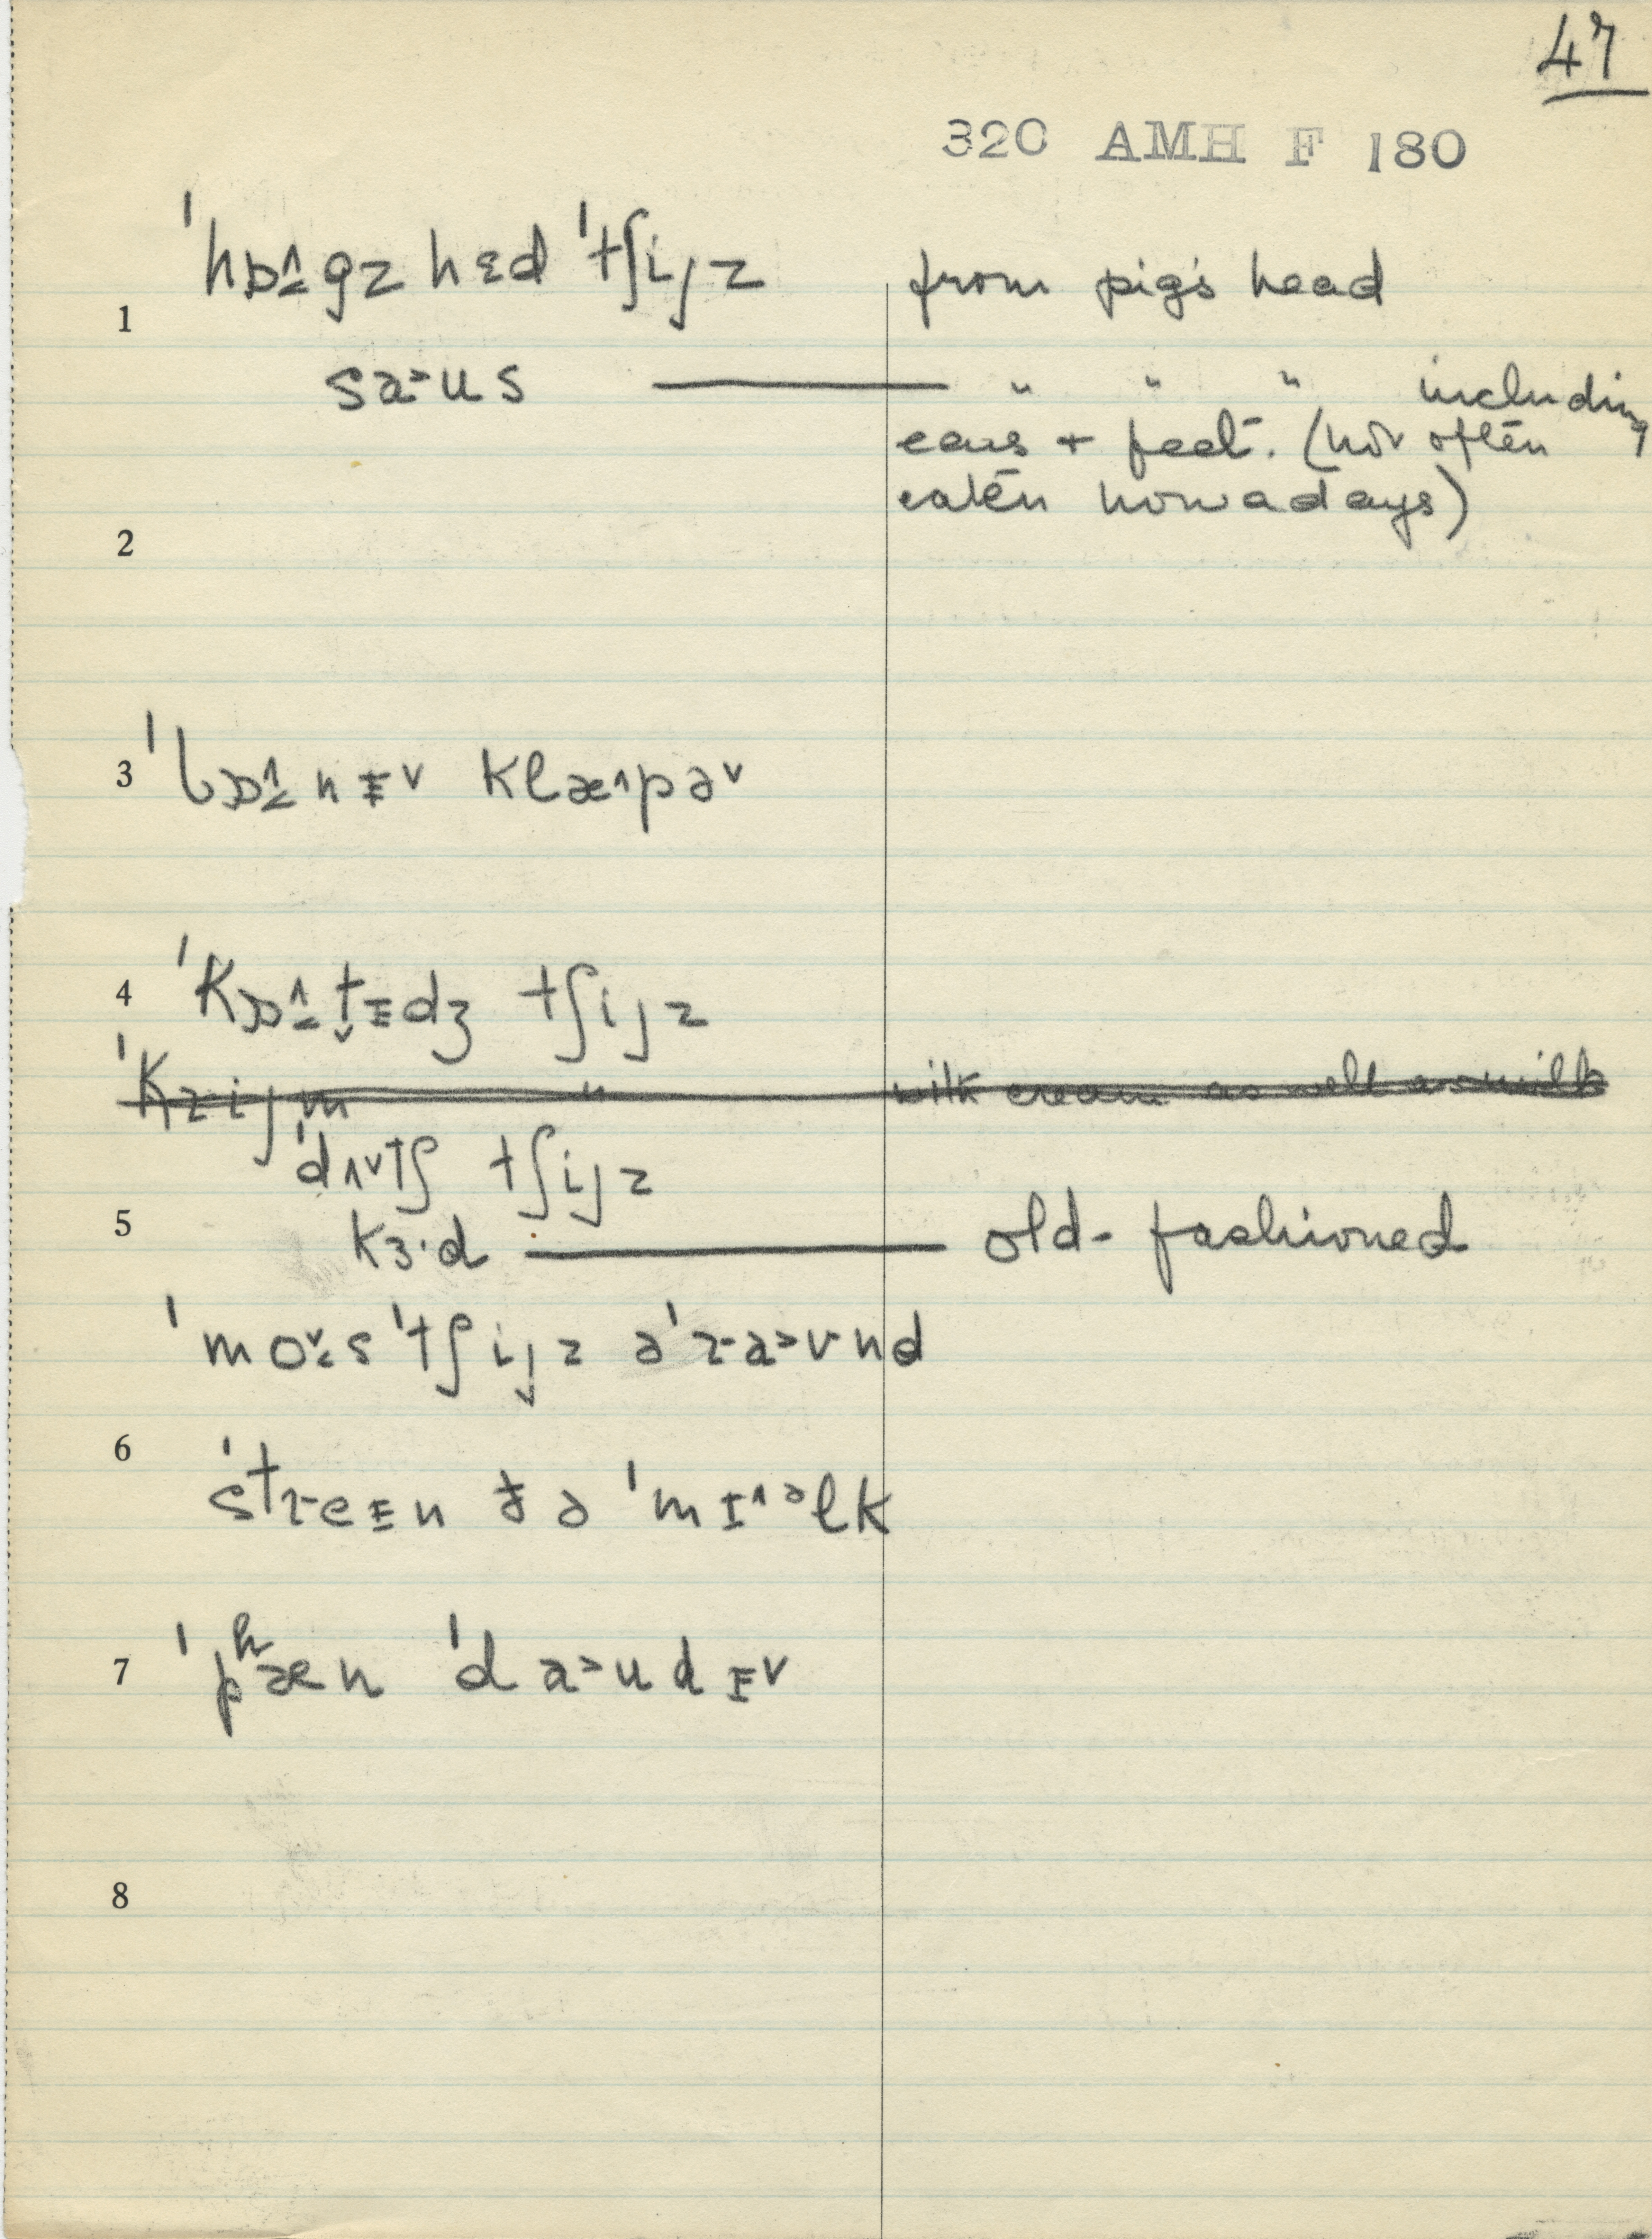 47
320 AMH F 180
ˈhɒ˄˂gz hɛd ˈtʃijz from pig's head
1
sa˃us —— " " " including
ears + feet. (not often
eaten nowadays)
2
3 ˈbɒ˄˂nᵻ˅ klæ˄pə˅
4 ˈkɒ˄˂t̬ᵻdʒ tʃijz
ˈkrijm " with cream as well as milk
ˈdʌ˅tʃ tʃijz
5
kɜ·d —— old-fashioned
ˈmo˅˂s ˈtʃijz əˈra˃ʊnd
6
ˈstreᵻn ðə ˈmɪ˄ᵊlk
7 ˈpʰæn ˈda˃udᵻ˅
8